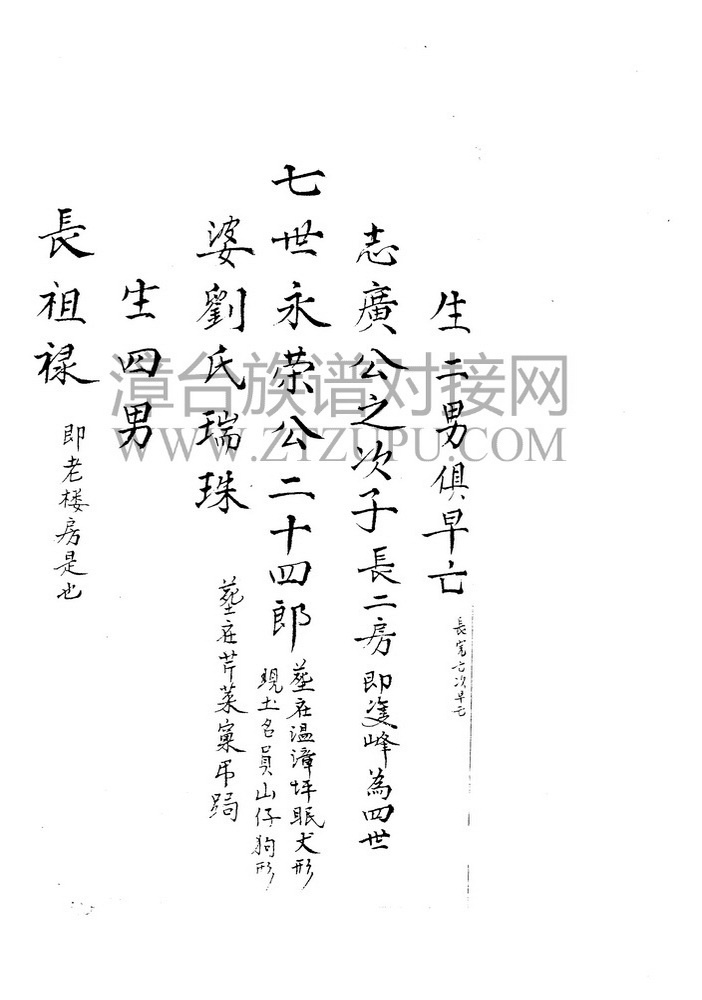 生二男俱早亡
長寛亡次早亡
志廣公之次子長二房即雙峰為四世
七世永荣公二十四郎
塟在温漳坪眠犬形
現土名員山仔狗形
婆劉氏瑞珠
塟在芹菜窠吊
生四男
長祖禄
即老楼房是也
漳台族谱对接网
WWW.ZTZUPU.COM